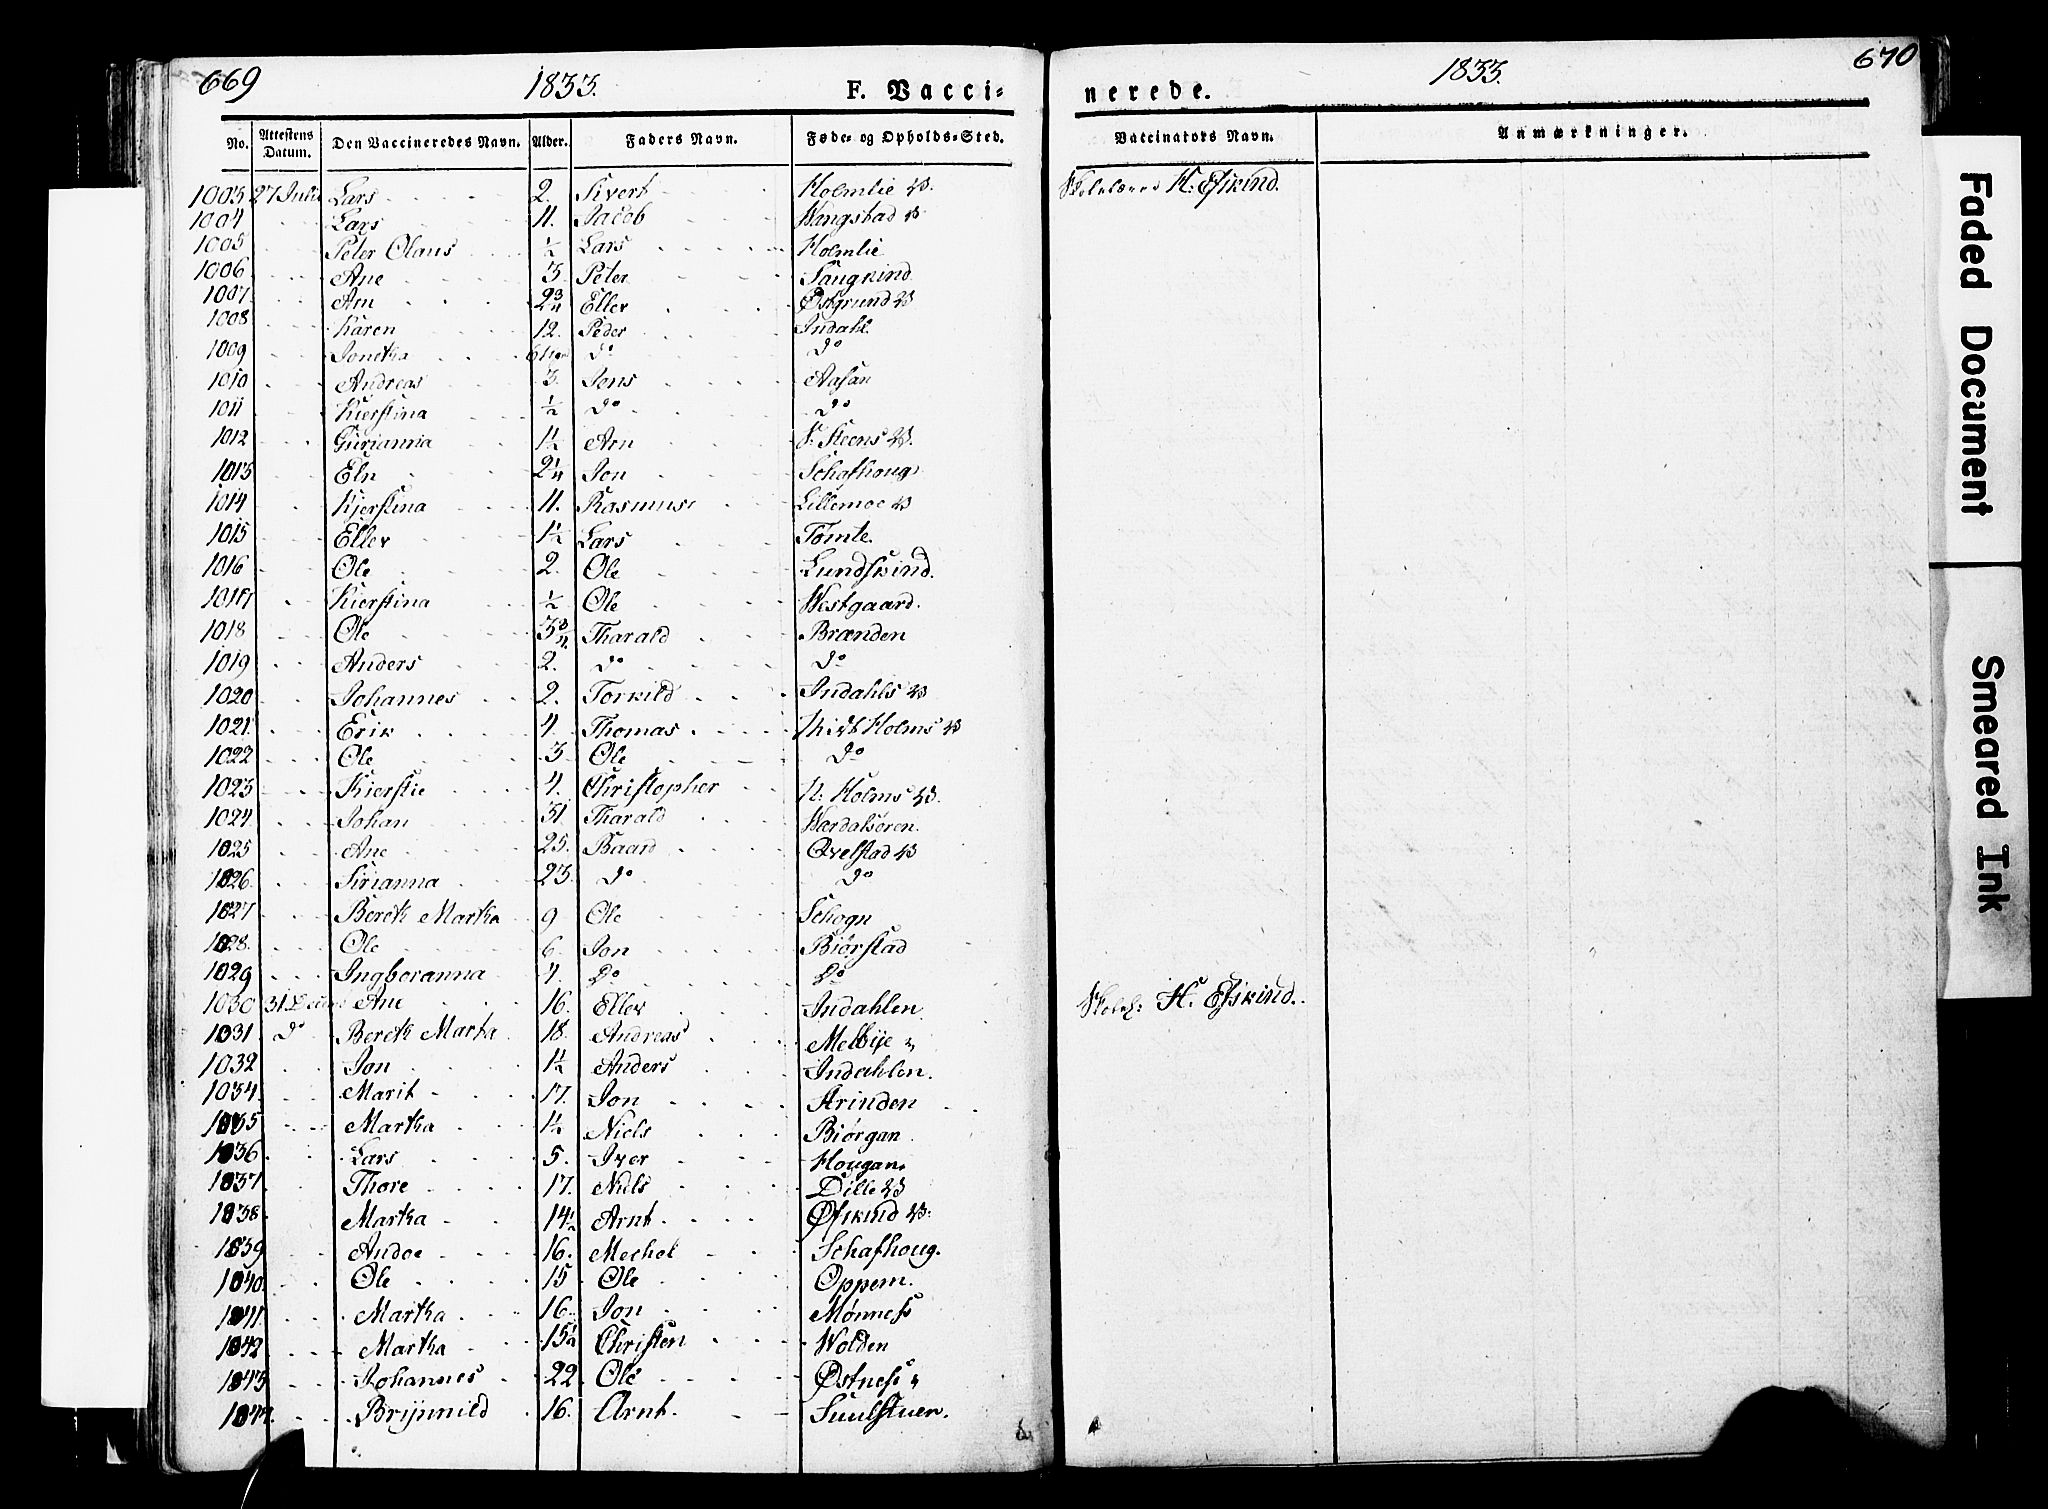 669 1833. F. Vacci-
nerede. 1833. 670
No. Attestens Datum. Den Vaccineredes Navn. Alder. Faders Navn. Føde- og Opholds-Sted. Vaccinators Navn. Anmærkninger.
1003 27 Juli Lars 2. Sivert Holmlie
1004 Lars Jacob
1005 Peter Olaus ½ Lars Holmlie
1006 Ane 3 Peter
1007 Eller Østgrund
1008 Karen 12. Peder Indahl
1009 Do Do
1010 Andreas 3. Jens Aasan
1011 Kierstina ½ Do Do
1012 Gurianna 1½ Arn
1013 Eln 2¼ Jon Schafhoug
1014 Kjerstina Rasmus Lillemoe
1015 Eller 1½ Lars Tømte.
1016 Ole 2. Ole Lundskind.
1017 Kierstina ½ Ole Westgaard.
1018 Ole 3¾ Tharald Brænden
1019 Anders 2. Do Do
1020 Johannes 2. Torkild Indahls
1021 Erik 4 Thomas Holms
1022 Ole 3 Ole Do
1023 Kierstie 4. Christopher N: Holms
1024 Johan 31 Tharald Værdalsøren.
1025 Ane 25. Baard Qvelstad
1026 Sirianna 23. Do Do
1027 Bereth Martha 9 Ole Schogn
1028. Ole 6. Jon Biørstad
1029 Ingboranna 4. Do Do
1030 Ane 16. Eller Indahlen
1031 Do Bereth Martha 18. Andreas Melbije
1032 Jon 1½ Anders Indahlen.
1034 Marit 17. Jon
1035 Martha 1½ Niels Biørgan.
1036 Lars 5. Iver Hougan.
1037 Thore 17. Niels Dille
1038 Martha 14½ Arnt Øfskind
1039 16. Mechel Schafhoug.
1040 Ole 15 Ole Oppem.
1041 Martha 16 Jon Mønnes
1042 Martha 15½ Christen Wolden
1043 Johannes 22 Ole Østnes
1044. Brynnild 16. Arnt Suulstuen.
H. Efskind.
H. Efskind.
Faded Document Smeared Ink